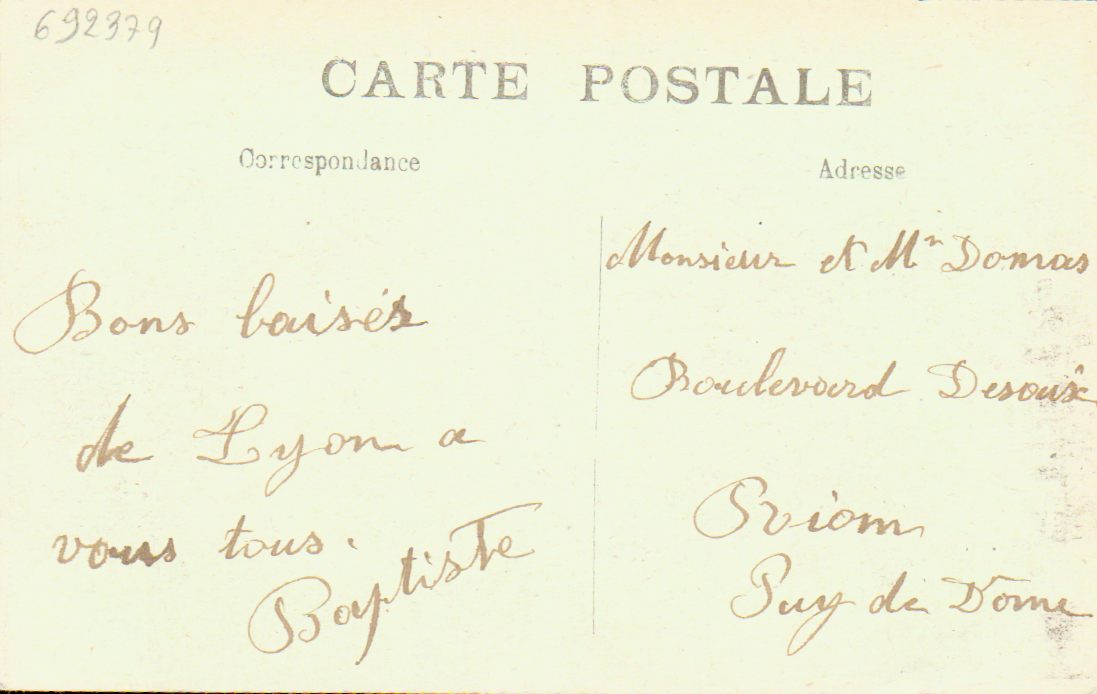 692379
CARTE POSTALE
Correspondance
Adresse
Bons baisés
de Lyon a
vous tous.
Baptiste
Monsieur et Mm Domas
Boulevard Desaix
Riom
Puy de Dome